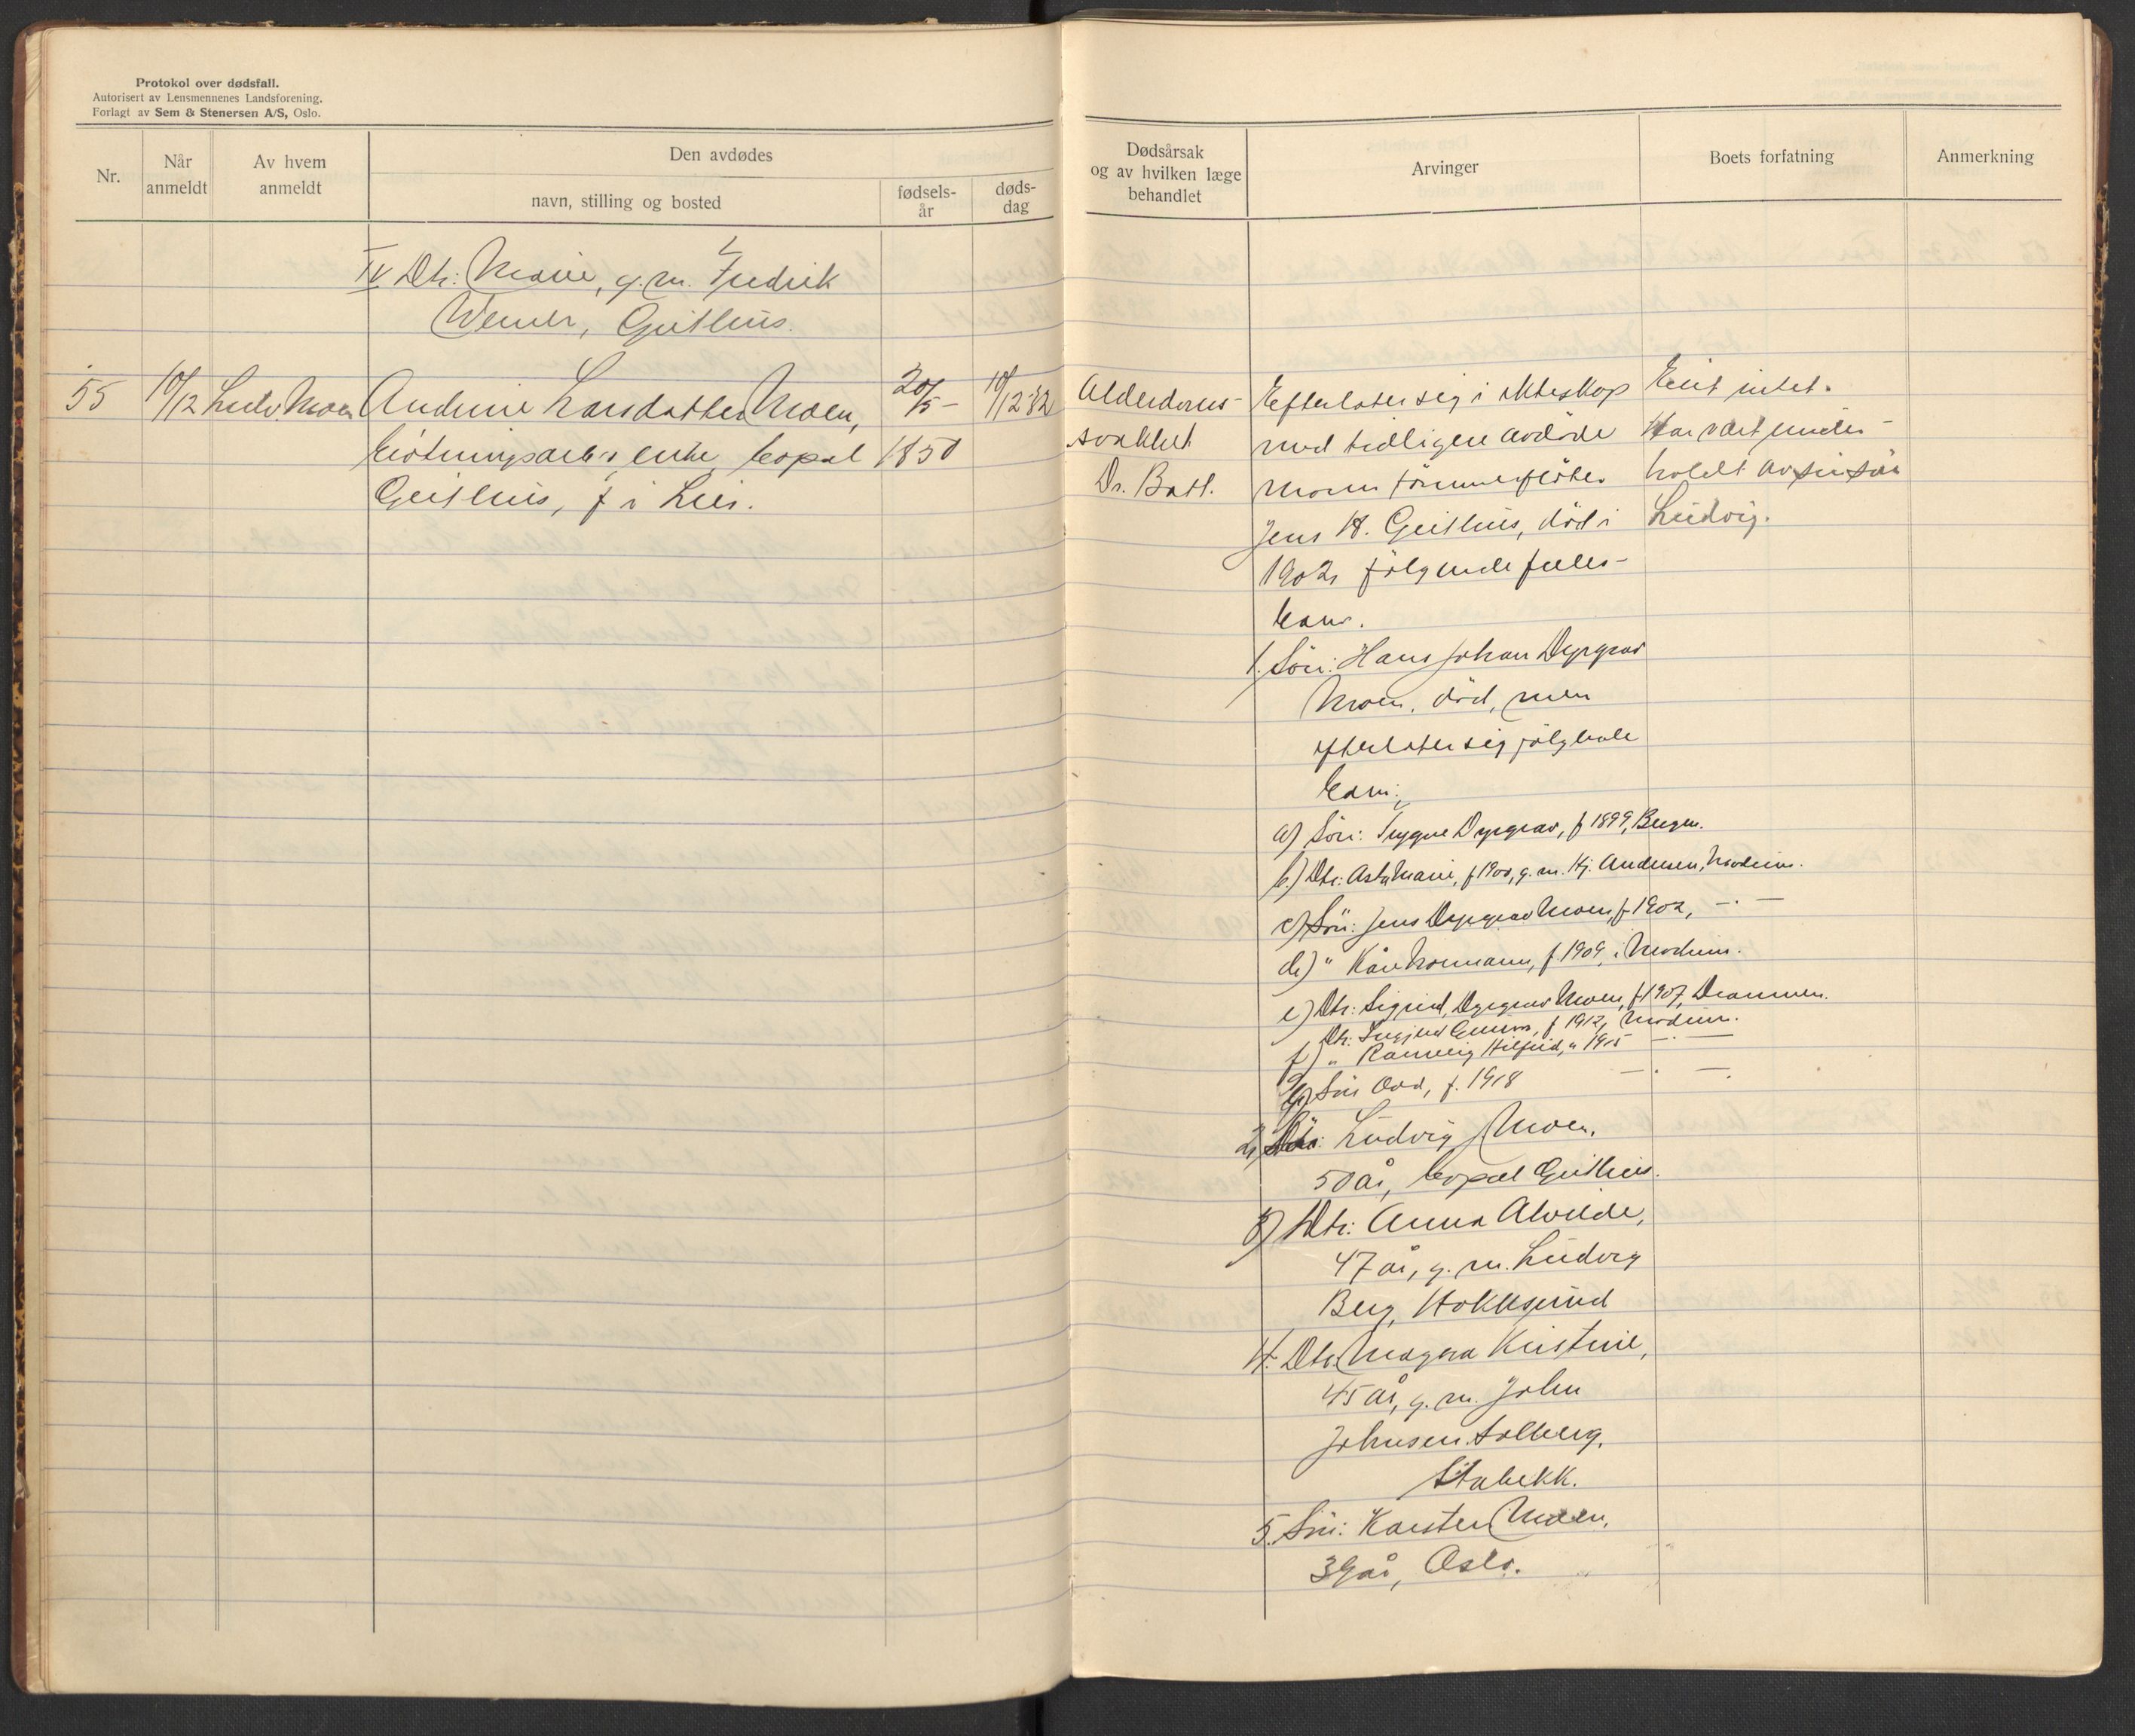 Protokol over dødsfall.
Autorisert av Lensmennenes Landsforening.
Forlagt av Sem & Stenersen A/S, Oslo.
Nr.
Når anmeldt
Av hvem anmeldt
Den avdødes
navn, stilling og bosted
fødsels-år
døds-dag
Dødsårsak og av hvilken læge behandlet
Arvinger
Boets forfatning
Anmerkning
IV Dtr: Marie, g. m. Fredrik
Werner, Geithus.
55 10/12 Ludv. Moen Andrine Larsdatter Moen, 20/5- 10/12-32
enke, bopæl 1850
Geithus, f i Lier.
Alderdoms-
svakhet
Dr. Batt.
Efterlater sig i ekteskap
med tidligere avdöde
mann tömmerfløter
Jens H. Geithus, död i
1902, følgende felles-
barn.
1. Sön: Hans Johan Dypgrav
Moen, död, men
efterlater sig følgende
barn:
a) Sön: Trygve Dypgrav, f 1899, Bergen.
b) Dtr: Asta Marie, f 1900, g. m. Hj. Andersen, Modum.
c) Sön: Jens Dypgrav Moen, f 1902, -"-
d) " Kåre Normann, f. 1909, i Modum.
e) Dtr: Sigrid, Dypgrav Moen, f 1907, Drammen.
Dtr: Ingjerd f 1912, Modum.
f) " Rannveig Hilfrid, " 1915 -"-
g) Sön Odd, f. 1918 -"-
2) Sön: Ludvig Moen,
50 år, bopæl Geithus.
3) Dtr: Anna Alvilde,
47 år, g. m. Ludvig
Berg, Hokksund
4. Dtr. Magna Kristine,
45 år, g. m. John
Johnsen Solberg,
Stabekk.
5. Sön: Karsten Moen,
39 år, Oslo.
Eiet intet.
Har vært under-
holdt av sin sön
Ludvig.